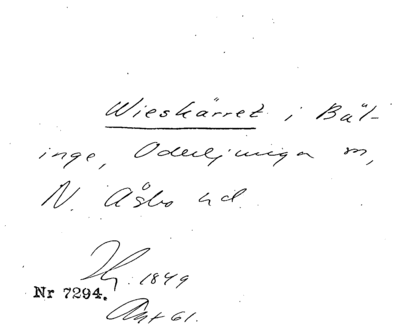 Wieskärret i Bäl-
inge, Oderljunga sn,
N. Åsbo hd.
1849
Nr 7294.
Akt 61.